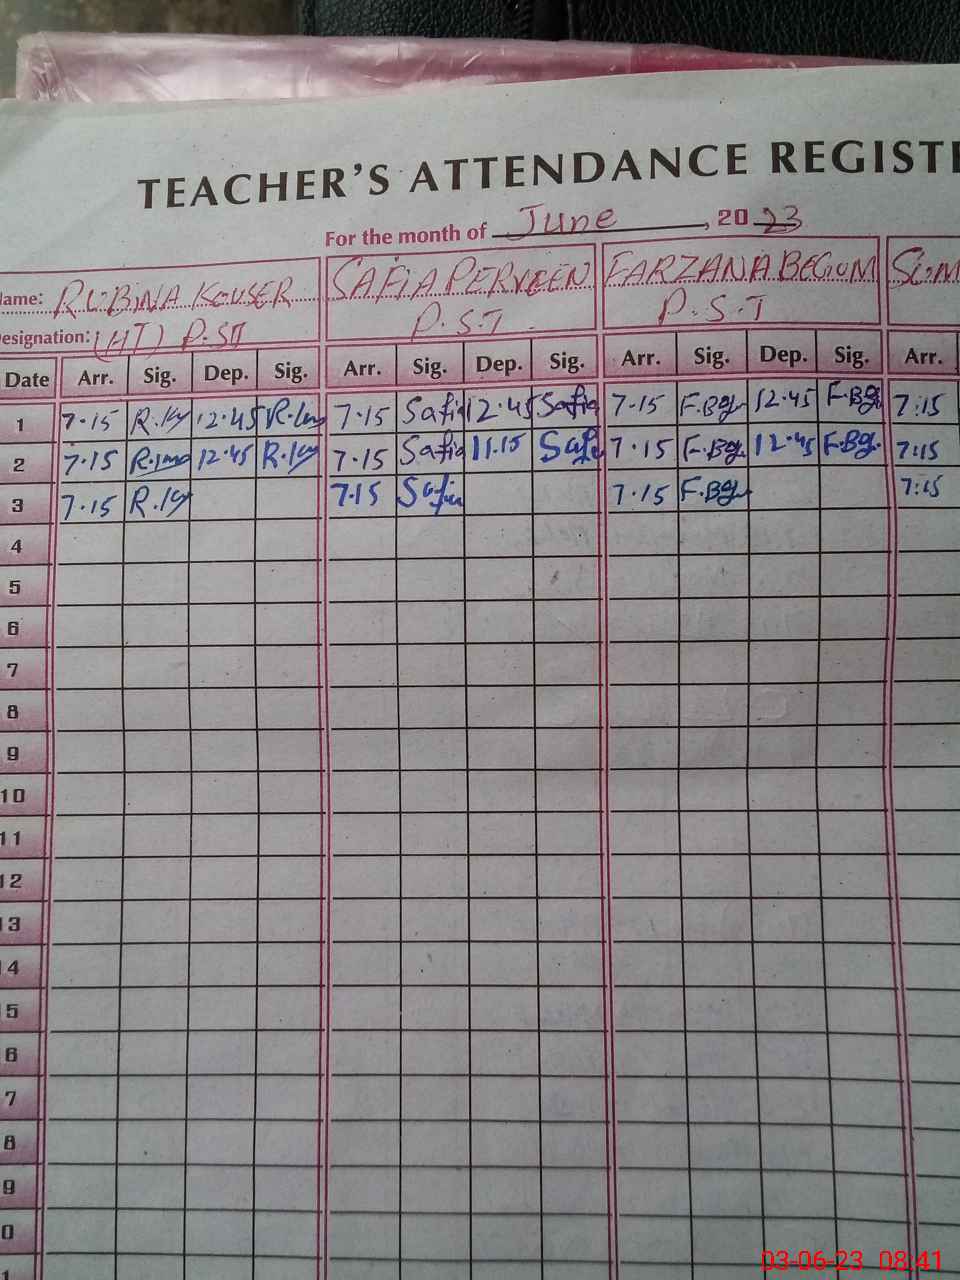 TEACHER'S ATTENDANCE REGISTE
For the month of June, 2023
Name: RUBINA KOUSER SAFIA PERVEEN FARZANA BEGUM SUM
Designation: (HT) P.ST P.S.T P.S.T
Date Arr. Sig. Dep. Sig. Arr. Sig. Dep. Sig. Arr. Sig. Dep. Sig. Arr.
1 7.15 12.45 7.15 Safia 12.45 Safia 7.15 F.Bg 12.45 F.Bg 7:15
2 7.15 12.45 7.15 Safia 11.15 Safi 7.15 F.Bg 12.45 F.Bg 7:15
3 7.15 7.15 Safia 7.15 F.Bg 7:15
4
5
6
7
8
9
10
11
12
13
14
5
6
7
8
9
0
1
03-06-23 08:41